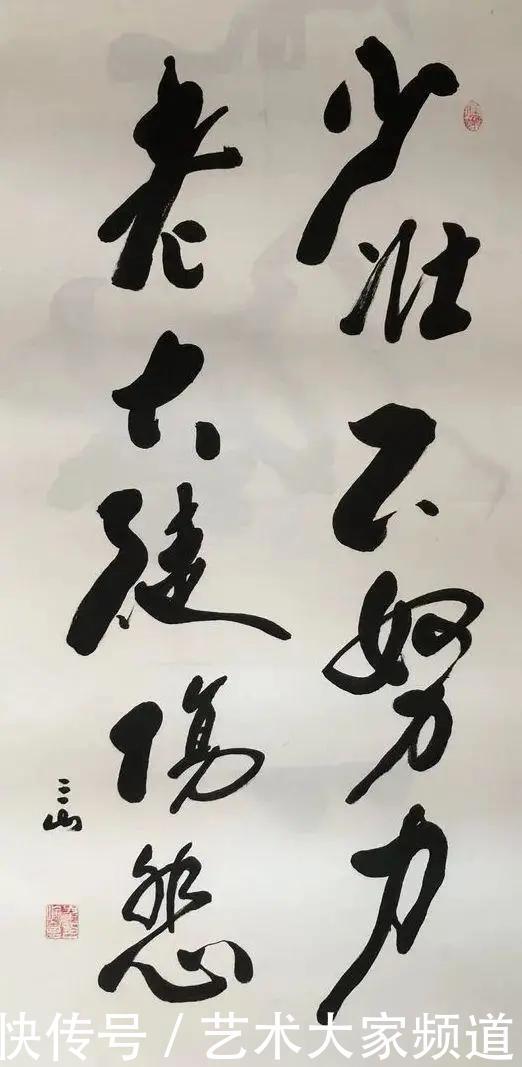 少壯不努力
老大徒傷悲
三山
快传号 / 艺术大家频道